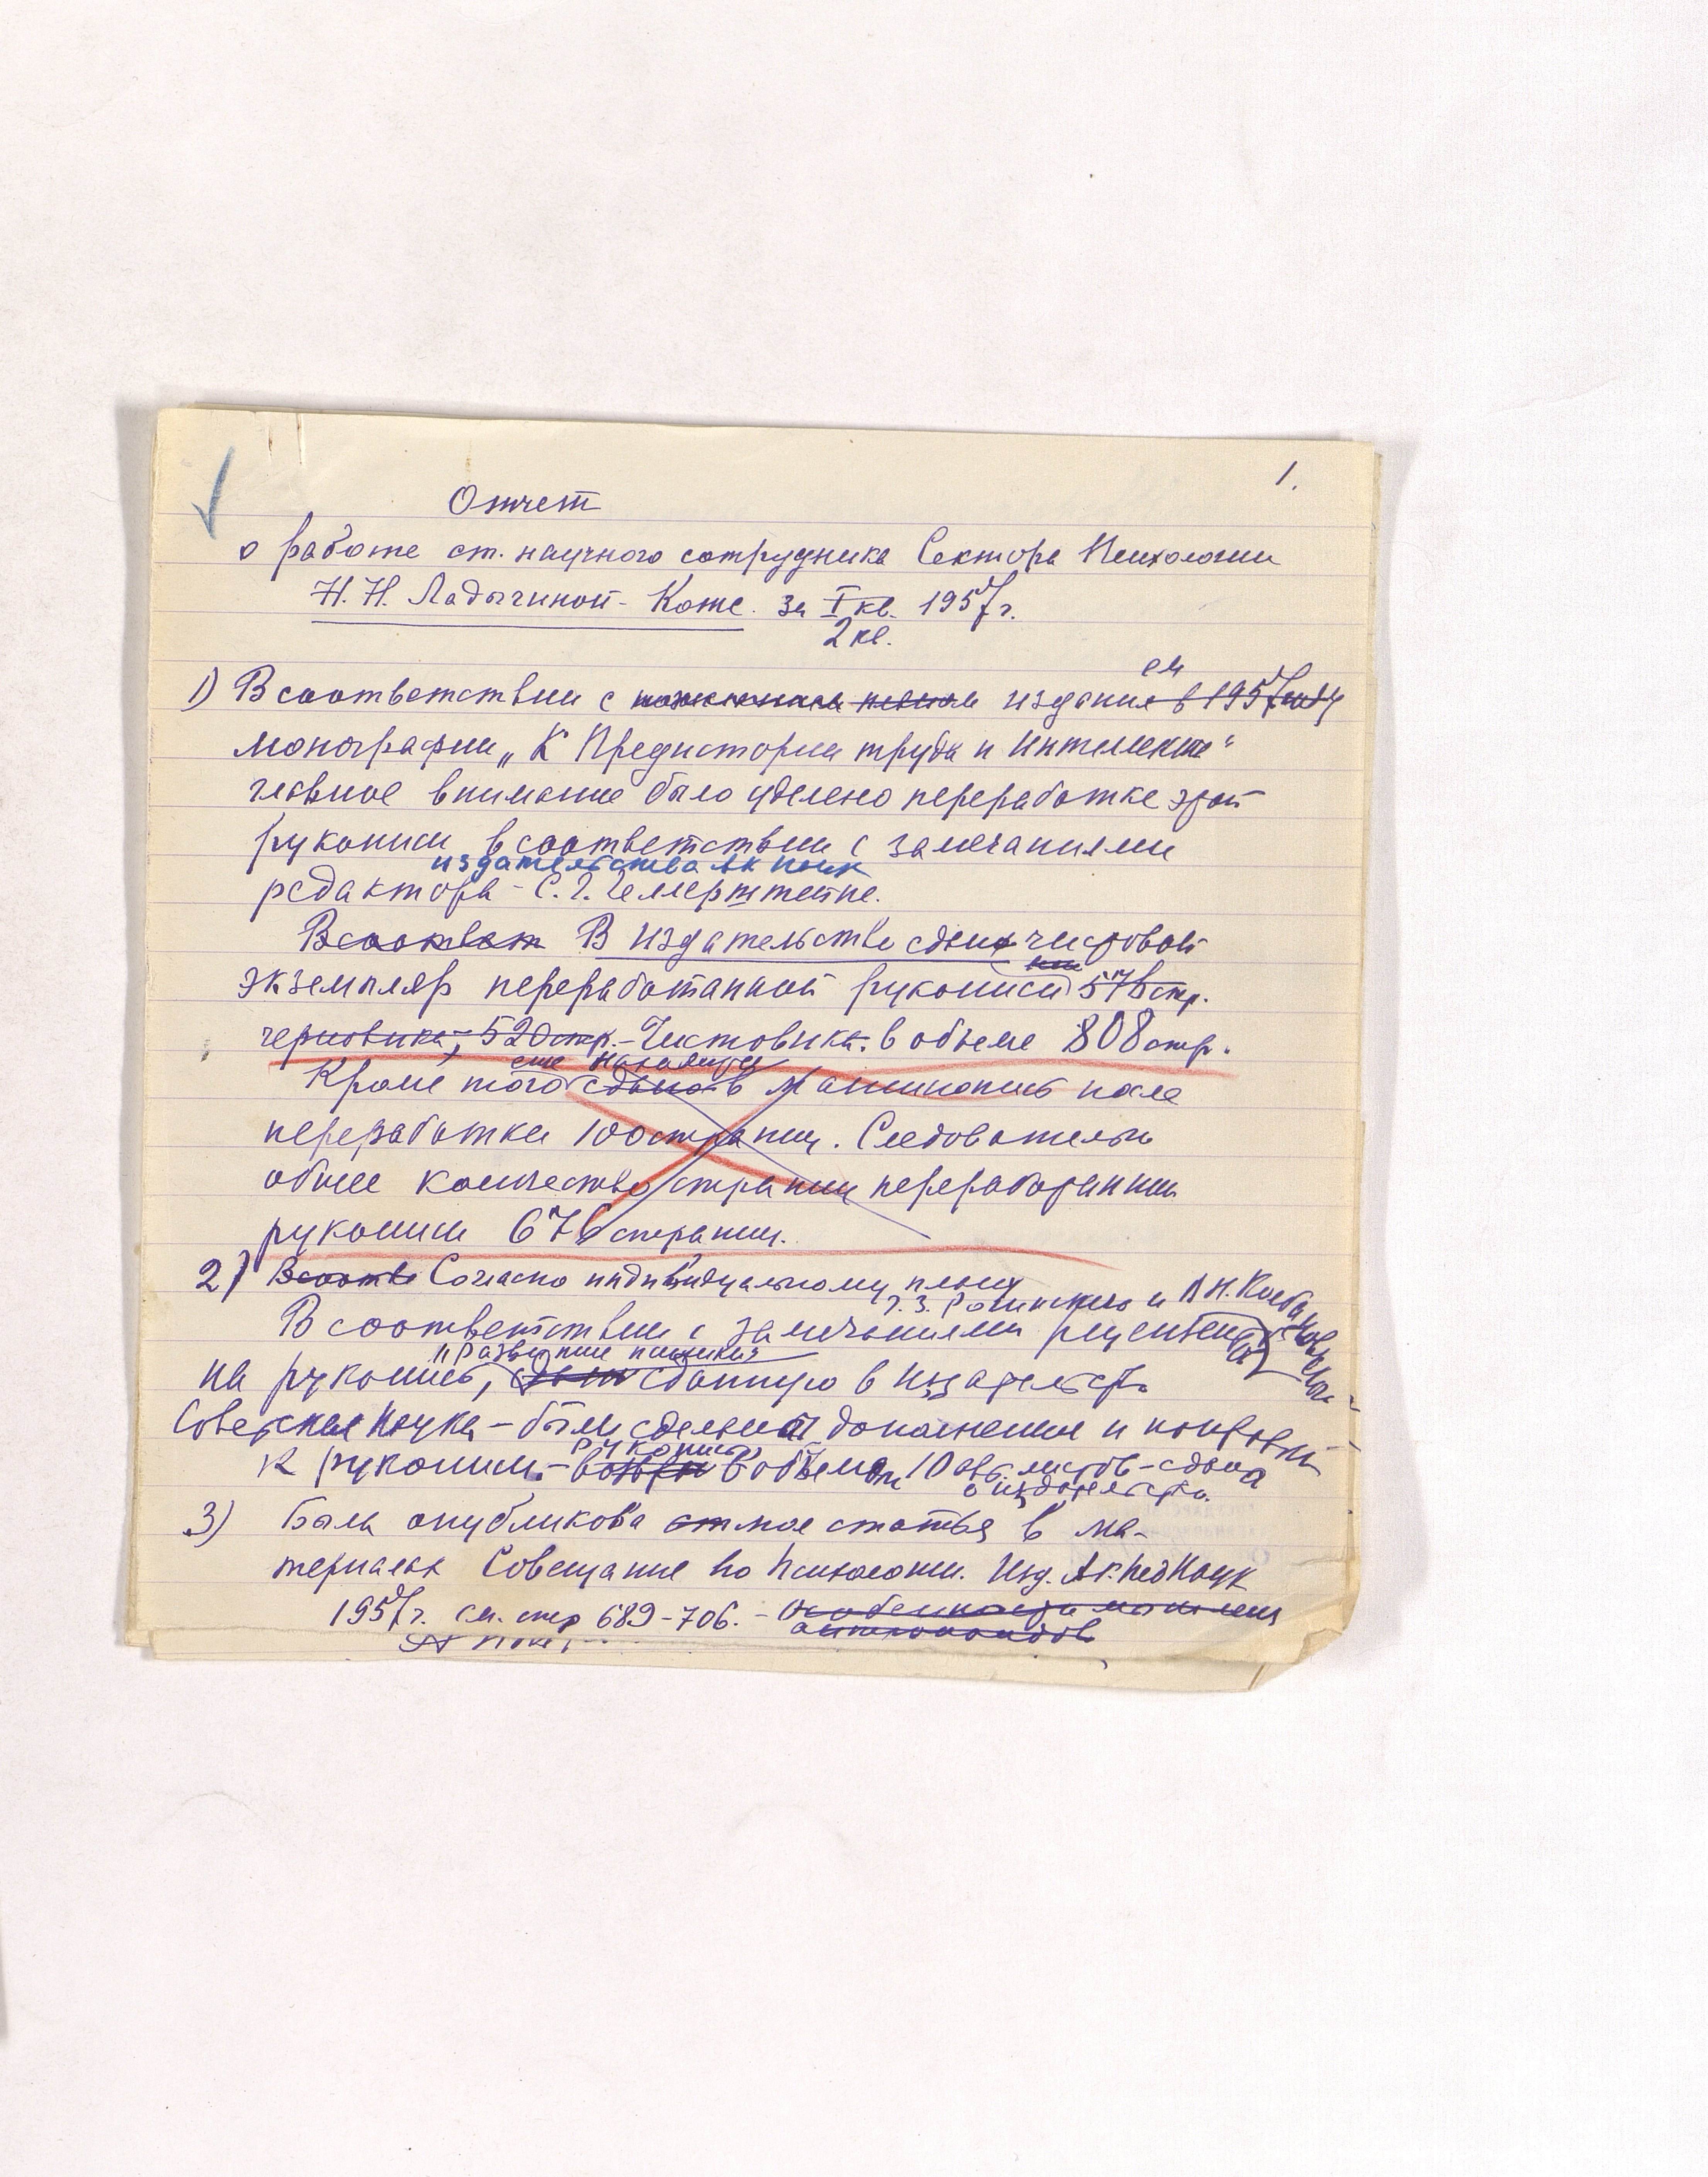 1.
Отчет
о работе ст. научного сотрудника Сектора Психологии
Н. Н. Ладыгиной-Котс за I кв. 1957 г.
2 кв.
ем
1) В соответствии с издания в 1957 году
монографии „К Предистории труда и интеллекта"
главное внимание было уделено переработке этой
рукописи в соответствии с замечаниями
издательства Ак Наук
редактора - С. Г. Геллерштейна.
В соответ В издательство сдан чистовой
экземпляр переработанной рукописи 576 стр.
черновика, 520 стр. - Чистовика в объеме 808 стр.
еще находится
Кроме того сдано в машинопись после
переработки 100 страниц. Следовательно
общее количество страниц переработанной
рукописи 676 страниц.
2) В соотв Согласно индивидуальному плану
Г. З. Рогинского и В. Н. Колбановского
В соответствии с замечаниями рецензентов
„Развитие психики"
на рукопись, сданную в издательство
Советская Наука - были сделаны дополнения и поправки
рукопись
к рукописи - в объеме 10 авт. листов - сдана
в издательство.
3) Была опубликована моя статья в ма-
териалах Совещания по психологии. Изд. Ак. Пед Наук
1957 г. см. стр 689-706. - Особенности мышления
антропоидов